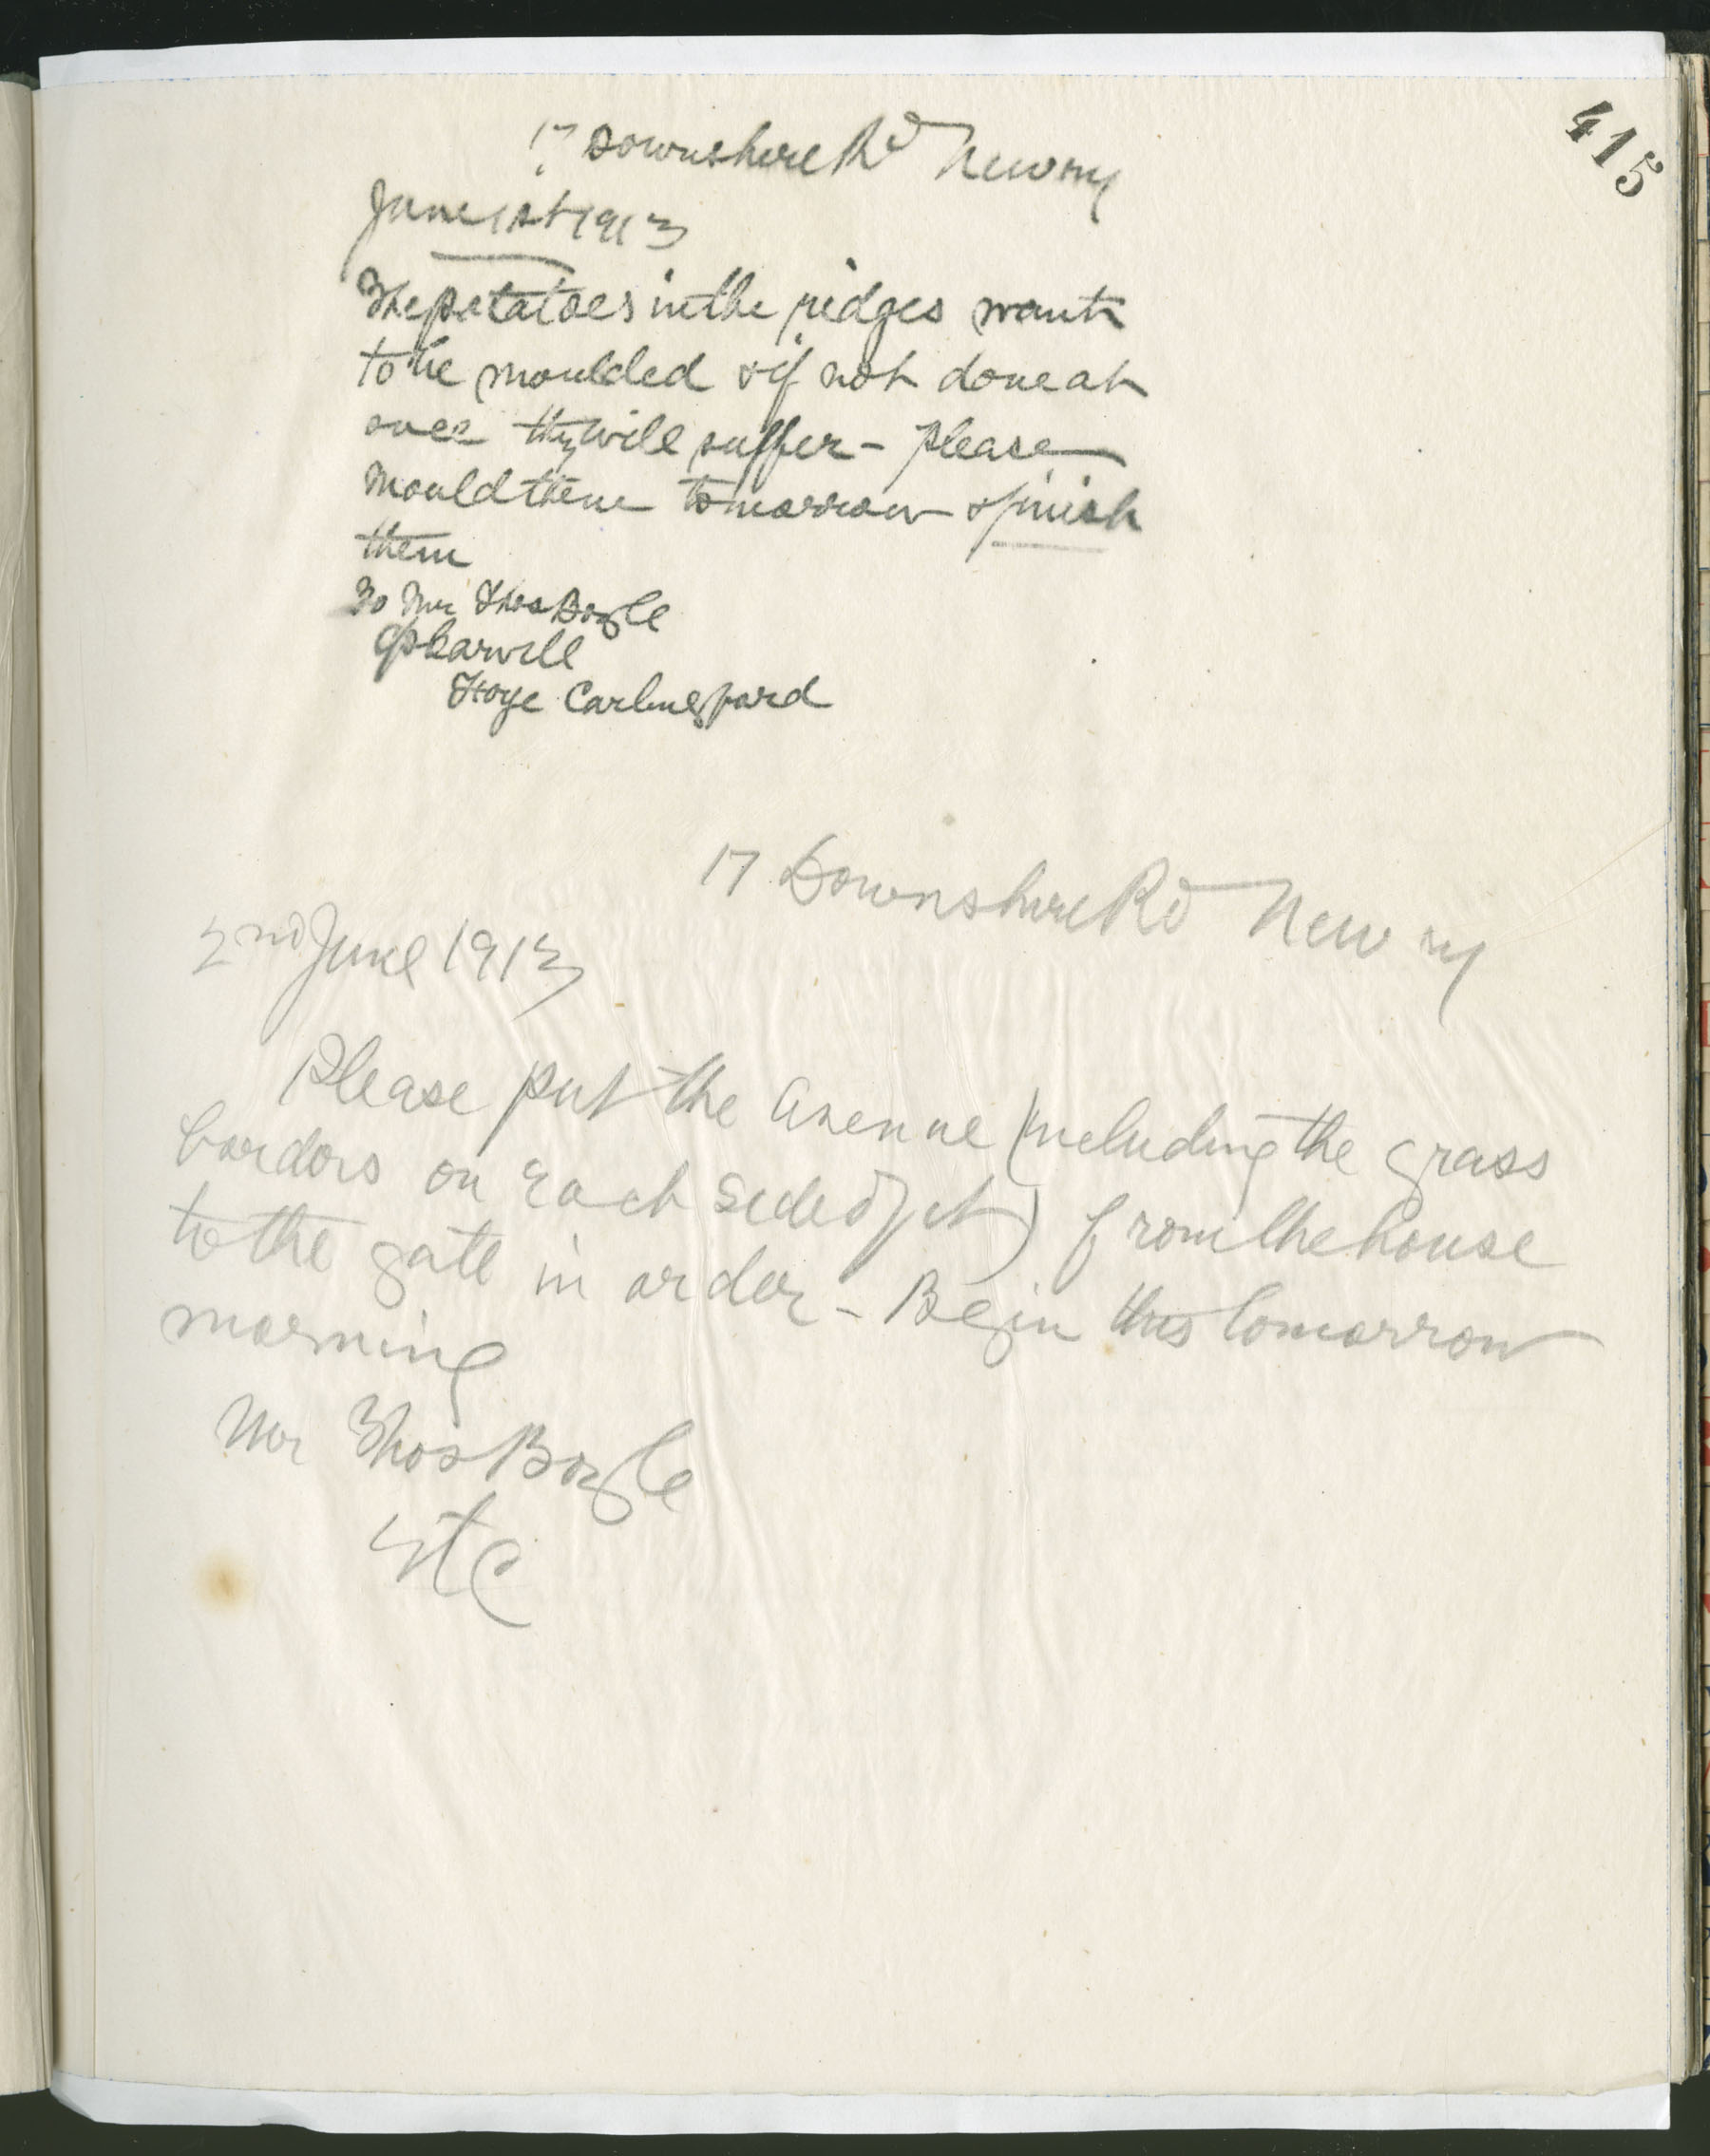 415
17 Downshire Rd Newry
June 1st 1913
The potatoes in the ridges want
to be moulded & if not done at
once they will suffer - please
mould them tomorrow & finish
them
To Mr Thos Boyle
Carlingford
17 Downshire Rd Newry
2nd June 1913
Please put the avenue (including the grass
bordors on each side of it) from the house
to the gate in order - Begin this tomorrow
morning
Mr Thos Boyle